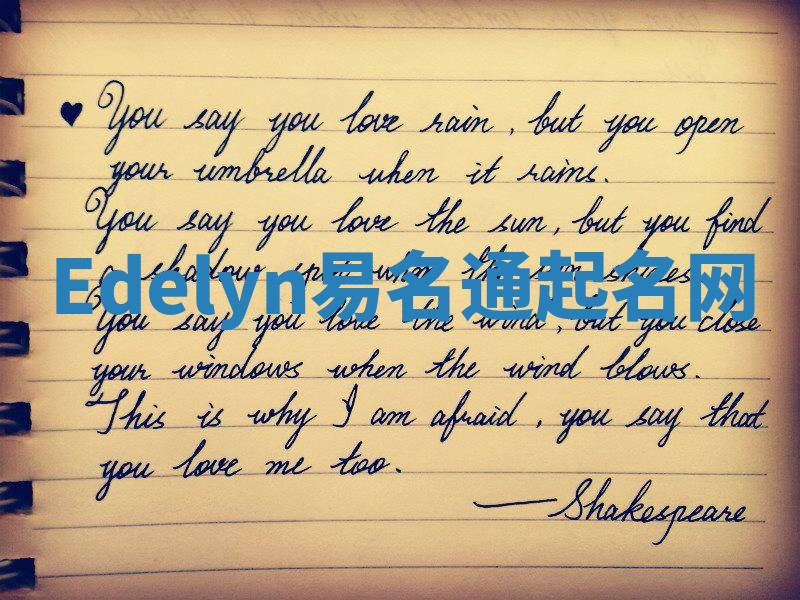 ♥ You say you love rain, but you open
your umbrella when it rains.
You say you love the sun, but you find
a shadow spot when the sun shines
Edelyn易名通起名网
You say you love the wind, but you close
your windows when the wind blows.
This is why I am afraid, you say that
you love me too.
—Shakespeare